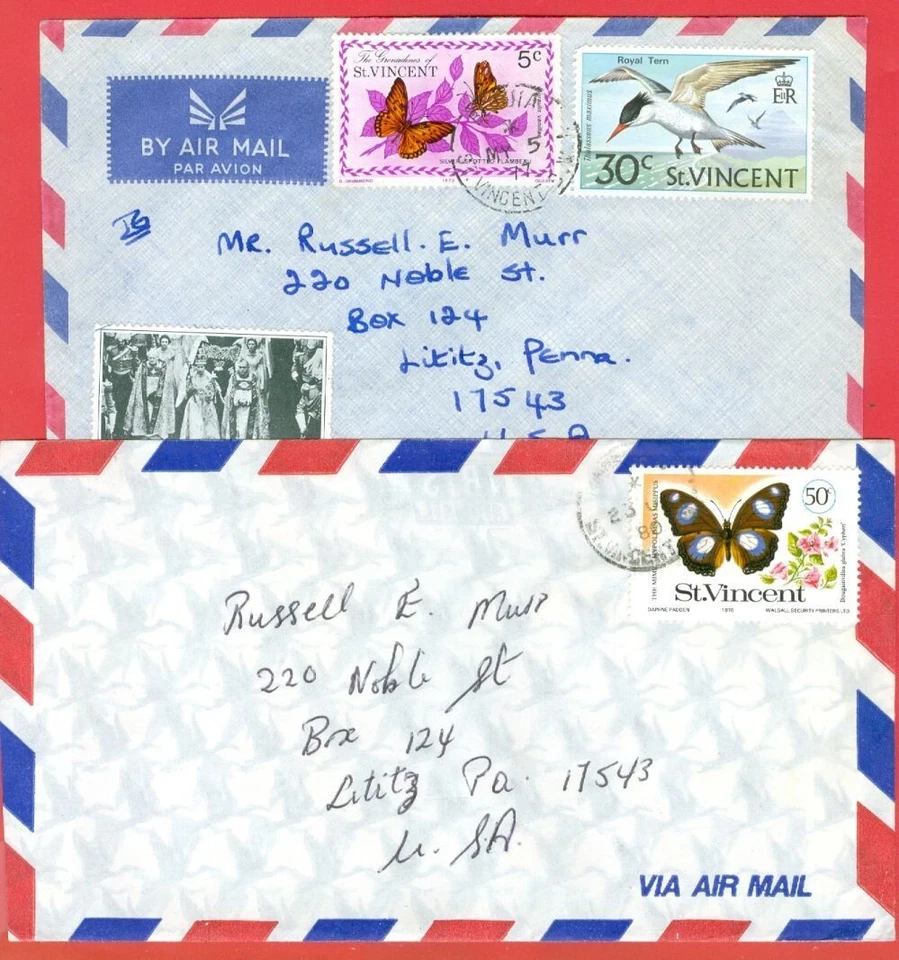 BY AIR MAIL
PAR AVION
The Grenadines of
St.VINCENT
5c
SILVER SPOTTED FLAMBEAU
VINCENT
Royal Tern
Thalasseus maximus
E II R
30c
St.VINCENT
Mr. Russell. E. Murr
220 Noble St.
Box 124
Lititz, Penna.
17543
U.S.A
50c
THE MIMIC
St.Vincent
Bougainvillea glabra 'Cypheri'
DAPHNE PADDEN 1978 WALSALL SECURITY PRINTERS LTD
23
Russell E. Murr
220 Noble St
Box 124
Lititz Pa. 17543
U.S.A.
VIA AIR MAIL